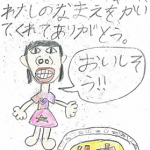 わたしのなまえをかい
てくれてありがとう。
おいしそ
う!!